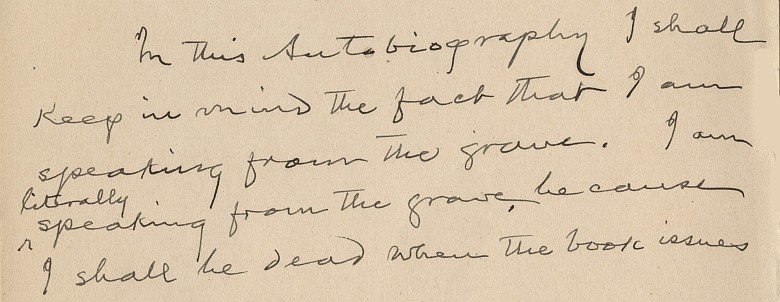 In this Autobiography I shall
keep in mind the fact that I am
speaking from the grave. I am
literally
speaking from the grave, because
I shall be dead when the book issues